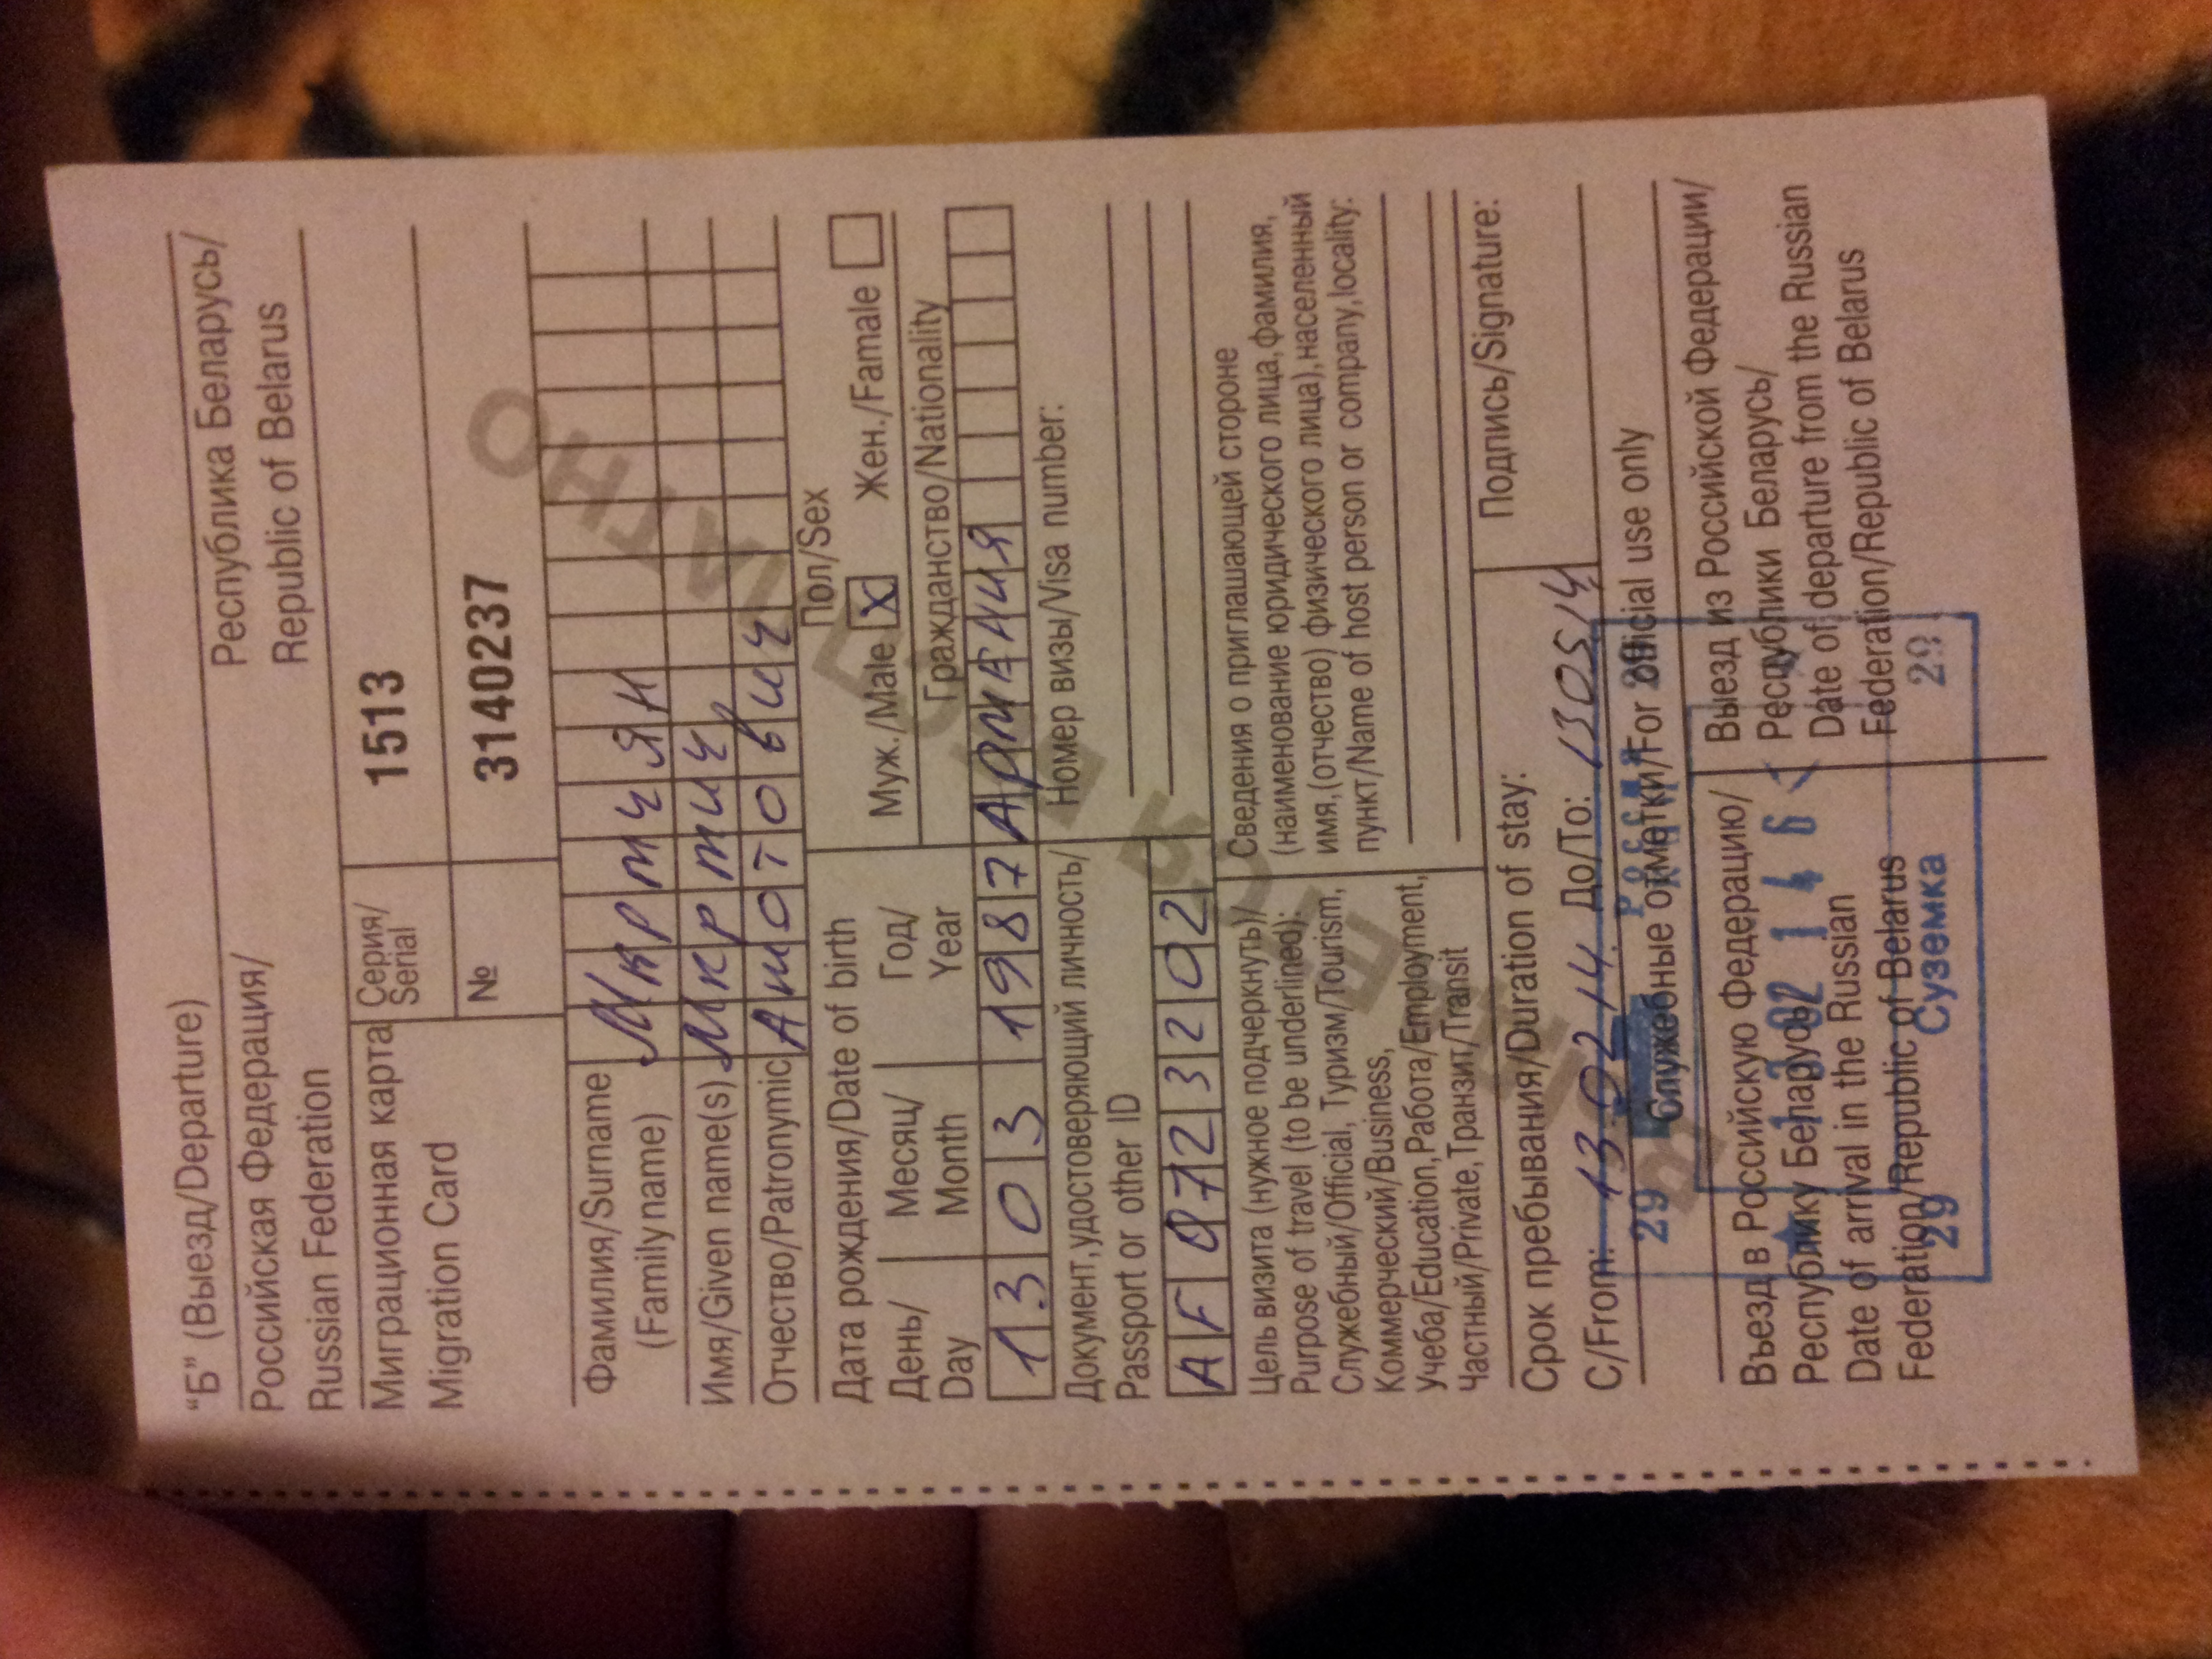 "Б" (Выезд/Departure)
Российская Федерация/ Республика Беларусь/
Russian Federation Republic of Belarus
Миграционная карта Серия/ 1513
Migration Card Serial
№ 3140237
Фамилия/Surname Мкртчян
(Family name)
Имя/Given name(s) Мкртич
Отчество/Patronymic Ашотович
Дата рождения/Date of birth Пол/Sex
День/ Месяц/ Год/ Муж./Male X Жен./Famale
Day Month Year Гражданство/Nationality
13 03 1987 Армения
Документ, удостоверяющий личность/ Номер визы/Visa number:
Passport or other ID
AF0723202
Цель визита (нужное подчеркнуть)/
Purpose of travel (to be underlined):
Служебный/Official, Туризм/Tourism,
Коммерческий/Business,
Учеба/Education, Работа/Employment,
Частный/Private, Транзит/Transit
Сведения о приглашающей стороне
(наименование юридического лица, фамилия,
имя, (отчество) физического лица), населенный
пункт/Name of host person or company, locality:
Срок пребывания/Duration of stay: Подпись/Signature:
С/From: 13 02 14. До/To: 130514
Служебные отметки/For official use only
Въезд в Российскую Федерацию/
Республику Беларусь/
Date of arrival in the Russian
Federation/Republic of Belarus
Выезд из Российской Федерации/
Республики Беларусь/
Date of departure from the Russian
Federation/Republic of Belarus
29 Россия
13 02 14 6
29 Суземка 29
ВЫДАЕТСЯ БЕСПЛАТНО